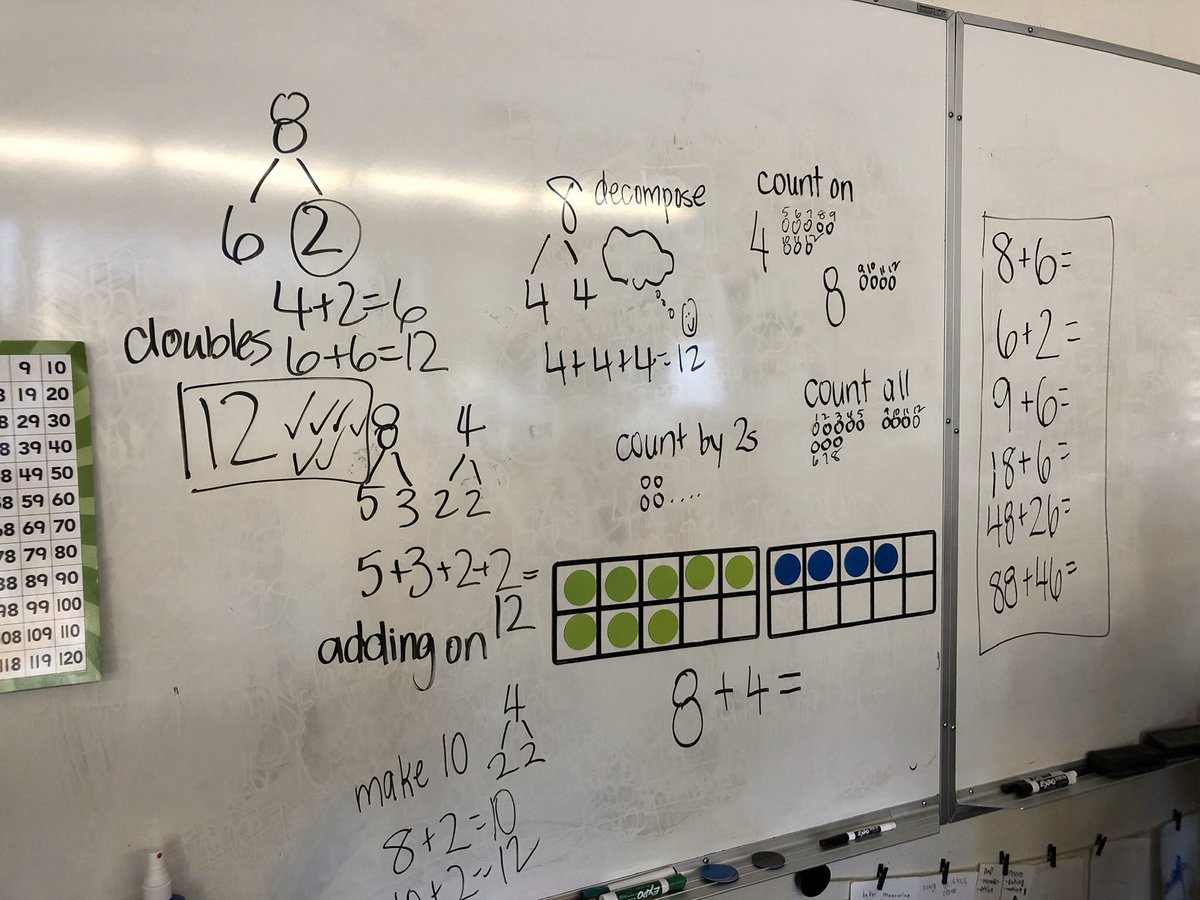 8
6 2
4+2=6
doubles 6+6=12
12
8 4
5 3 2 2
5+3+2+2=
12
adding on
4
make 10 2 2
8+2=10
10+2=12
8 decompose
4 4
4+4+4=12
count by 2s
....
count on
5 6 7 8 9
4
10 11 12
8 9 10 11 12
count all
1 2 3 4 5 9 10 11 12
6 7 8
8+4=
8+6=
6+2=
9+6=
18+6=
48+26=
88+46=
9 10
19 20
8 29 30
8 39 40
8 49 50
58 59 60
68 69 70
78 79 80
88 89 90
98 99 100
108 109 110
118 119 120
EXPO